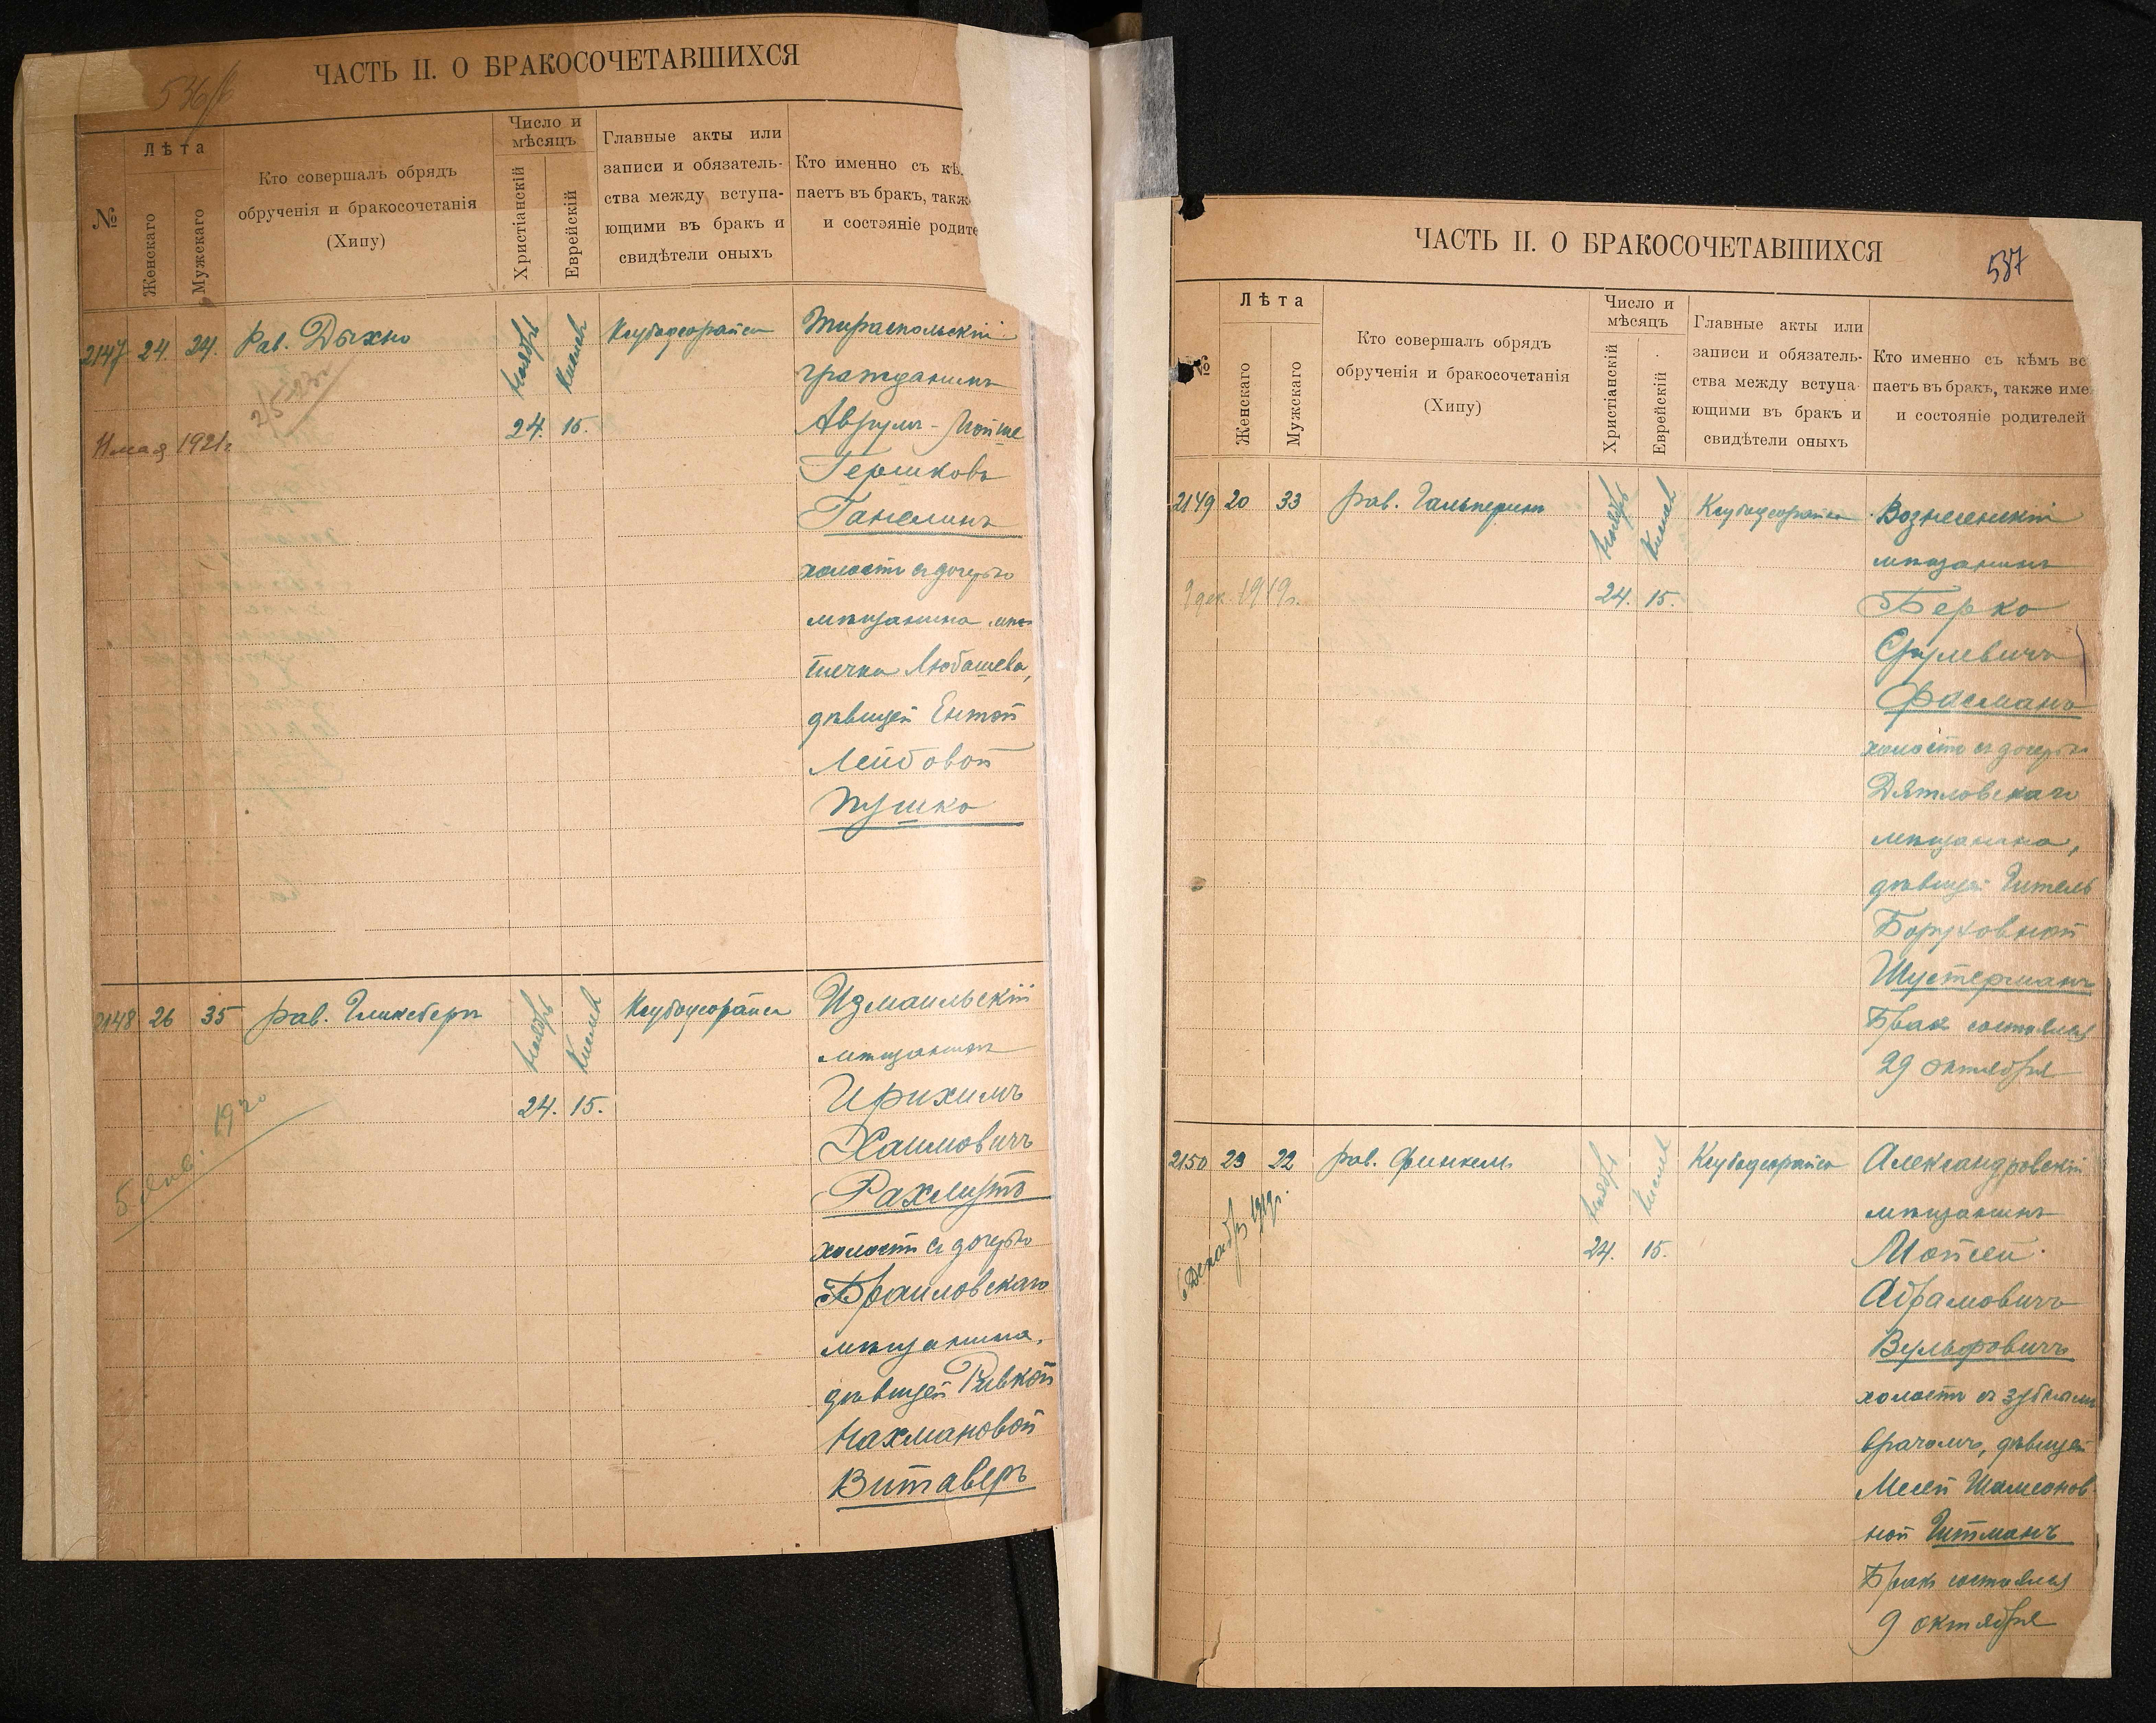 536
ЧАСТЬ II. О БРАКОСОЧЕТАВШИХСЯ
№
Лѣта
Женскаго
Мужскаго
Кто совершалъ обрядъ
обрученія и бракосочетанія
(Хипу)
Число и
мѣсяцъ
Христіанскій
Еврейскій
Главные акты или
записи и обязатель-
ства между вступа-
ющими въ бракъ и
свидѣтели оныхъ
Кто именно съ кѣ
паетъ въ бракъ, такж
и состояніе родите
2147 24. 24. Рав. Дыхно
Ноябрь
24.
Кислев
15.
Тираспольскій
гражданинъ
Аврумъ-Мойше
Гершковъ
Ганелинъ
холостъ съ дочерью
мѣщанина мѣс-
течка Любашева,
дѣвицей Ентой
Лейбовой
Пушко
11 мая 1921 г.
2148 26 35 рав. Гликсберг
Ноябрь
24.
Кислев
15.
Измаильскій
мѣщанин
Ирихимъ
Хаимовичъ
Рахмутъ
холостъ съ дочерью
Браиловскаго
мѣщанина,
дѣвицей Ривкой
Нахмановой
Витаверъ
5 янв. 1920
ЧАСТЬ II. О БРАКОСОЧЕТАВШИХСЯ
537
№
Лѣта
Женскаго
Мужскаго
Кто совершалъ обрядъ
обрученія и бракосочетанія
(Хипу)
Число и
мѣсяцъ
Христіанскій
Еврейскій
Главные акты или
записи и обязатель-
ства между вступа-
ющими въ бракъ и
свидѣтели оныхъ
Кто именно съ кѣмъ вс
паетъ въ бракъ, также име
и состояніе родителей
2149 20 33 рав. Гальперин
Ноябрь
24.
Кислев
15.
Вознесенскій
мѣщанинъ
Берко
Срулевичъ
Фасманъ
холостъ съ дочерью
Дятловскаго
мѣщанина,
дѣвицей Гитель
Боруховной
Шустерманъ
Брак состоялся
29 октября
9 дек. 1919 г.
2150 23 22 рав. Финкель
Ноябрь
24.
Кислев
15.
Александровскій
мѣщанинъ
Мойсей
Абрамовичъ
Вульфовичъ
холостъ съ зубнымъ
врачомъ, дѣвицей
Шамсонов-
ной Гитманъ
Бракъ состоялся
9 октября
Декабрь 1919 г.